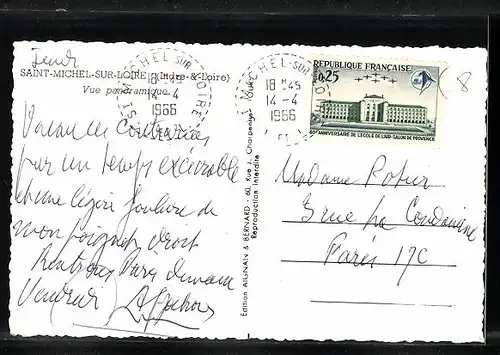 Jeudi
SAINT-MICHEL-SUR-LOIRE (Indre-&-Loire)
Vue panoramique
ST MICHEL SUR LOIRE
18 H 45
14-4
1966
Vacances contrariées
par un temps exécrable
et une légère foulure de
mon poignet droit
Rentrons Paris demain
Vendredi
Edition ARSNAIN & BERNARD - 60, Rue J. Charpentier, Tours
Reproduction interdite
ST MICHEL-SUR-LOIRE
18 H 45
14-4
1966
REPUBLIQUE FRANÇAISE
0,25
ANNIVERSAIRE DE L'ECOLE DE L'AIR-SALON DE PROVENCE
8
Madame Potier
3 rue La Condamine
Paris 17e